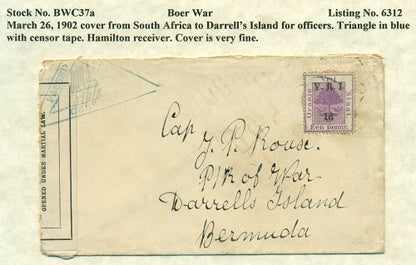 Stock No. BWC37a Boer War Listing No. 6312
March 26, 1902 cover from South Africa to Darrell's Island for officers. Triangle in blue
with censor tape. Hamilton receiver. Cover is very fine.
OPENED UNDER MARTIAL LAW.
Oranje
V.R.I.
1d
Een penny
Cap
J. P. Rouse.
P/R of War
Darrells Island
Bermuda